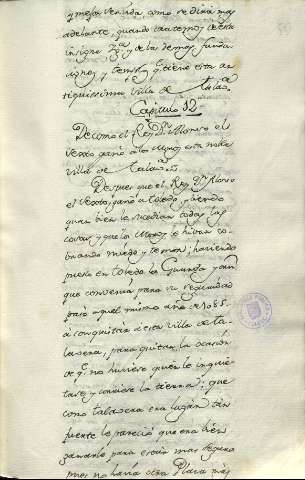 y mejor venida, como se dirá mas
adelante, quando tratemos de esta
insigne Ygª. y de las demas funda-
ciones y templos qᵉ. tiene esta an-
tiquissima Villa de Talaᵃ.
Capitulo 12
De como el Rey Dⁿ. Alonso el
Sexto ganó a los Moros esta noble
villa de Talaᵃ.
Despues que el Rey Dⁿ. Alonso
el Sexto, ganó a Toledo, y viendo
quan bien le sucedian todas sus
cosas, y que los Moros le hiban co-
brando miedo, y temor; haviendo
puesto en Toledo la Guarda, y
que convenia para su seguridad
pasó aquel mismo año de 1085.
á conquistar á esta villa de Ta-
lavera, para quitar la ocasion
de qᵉ. no huviese quien le inquie-
tase y corriese la tierra; que
como Talavera era lugar tan
fuerte le pareció que era bien
ganarlo para estar mas seguro
pues no havia otra Plaza mas